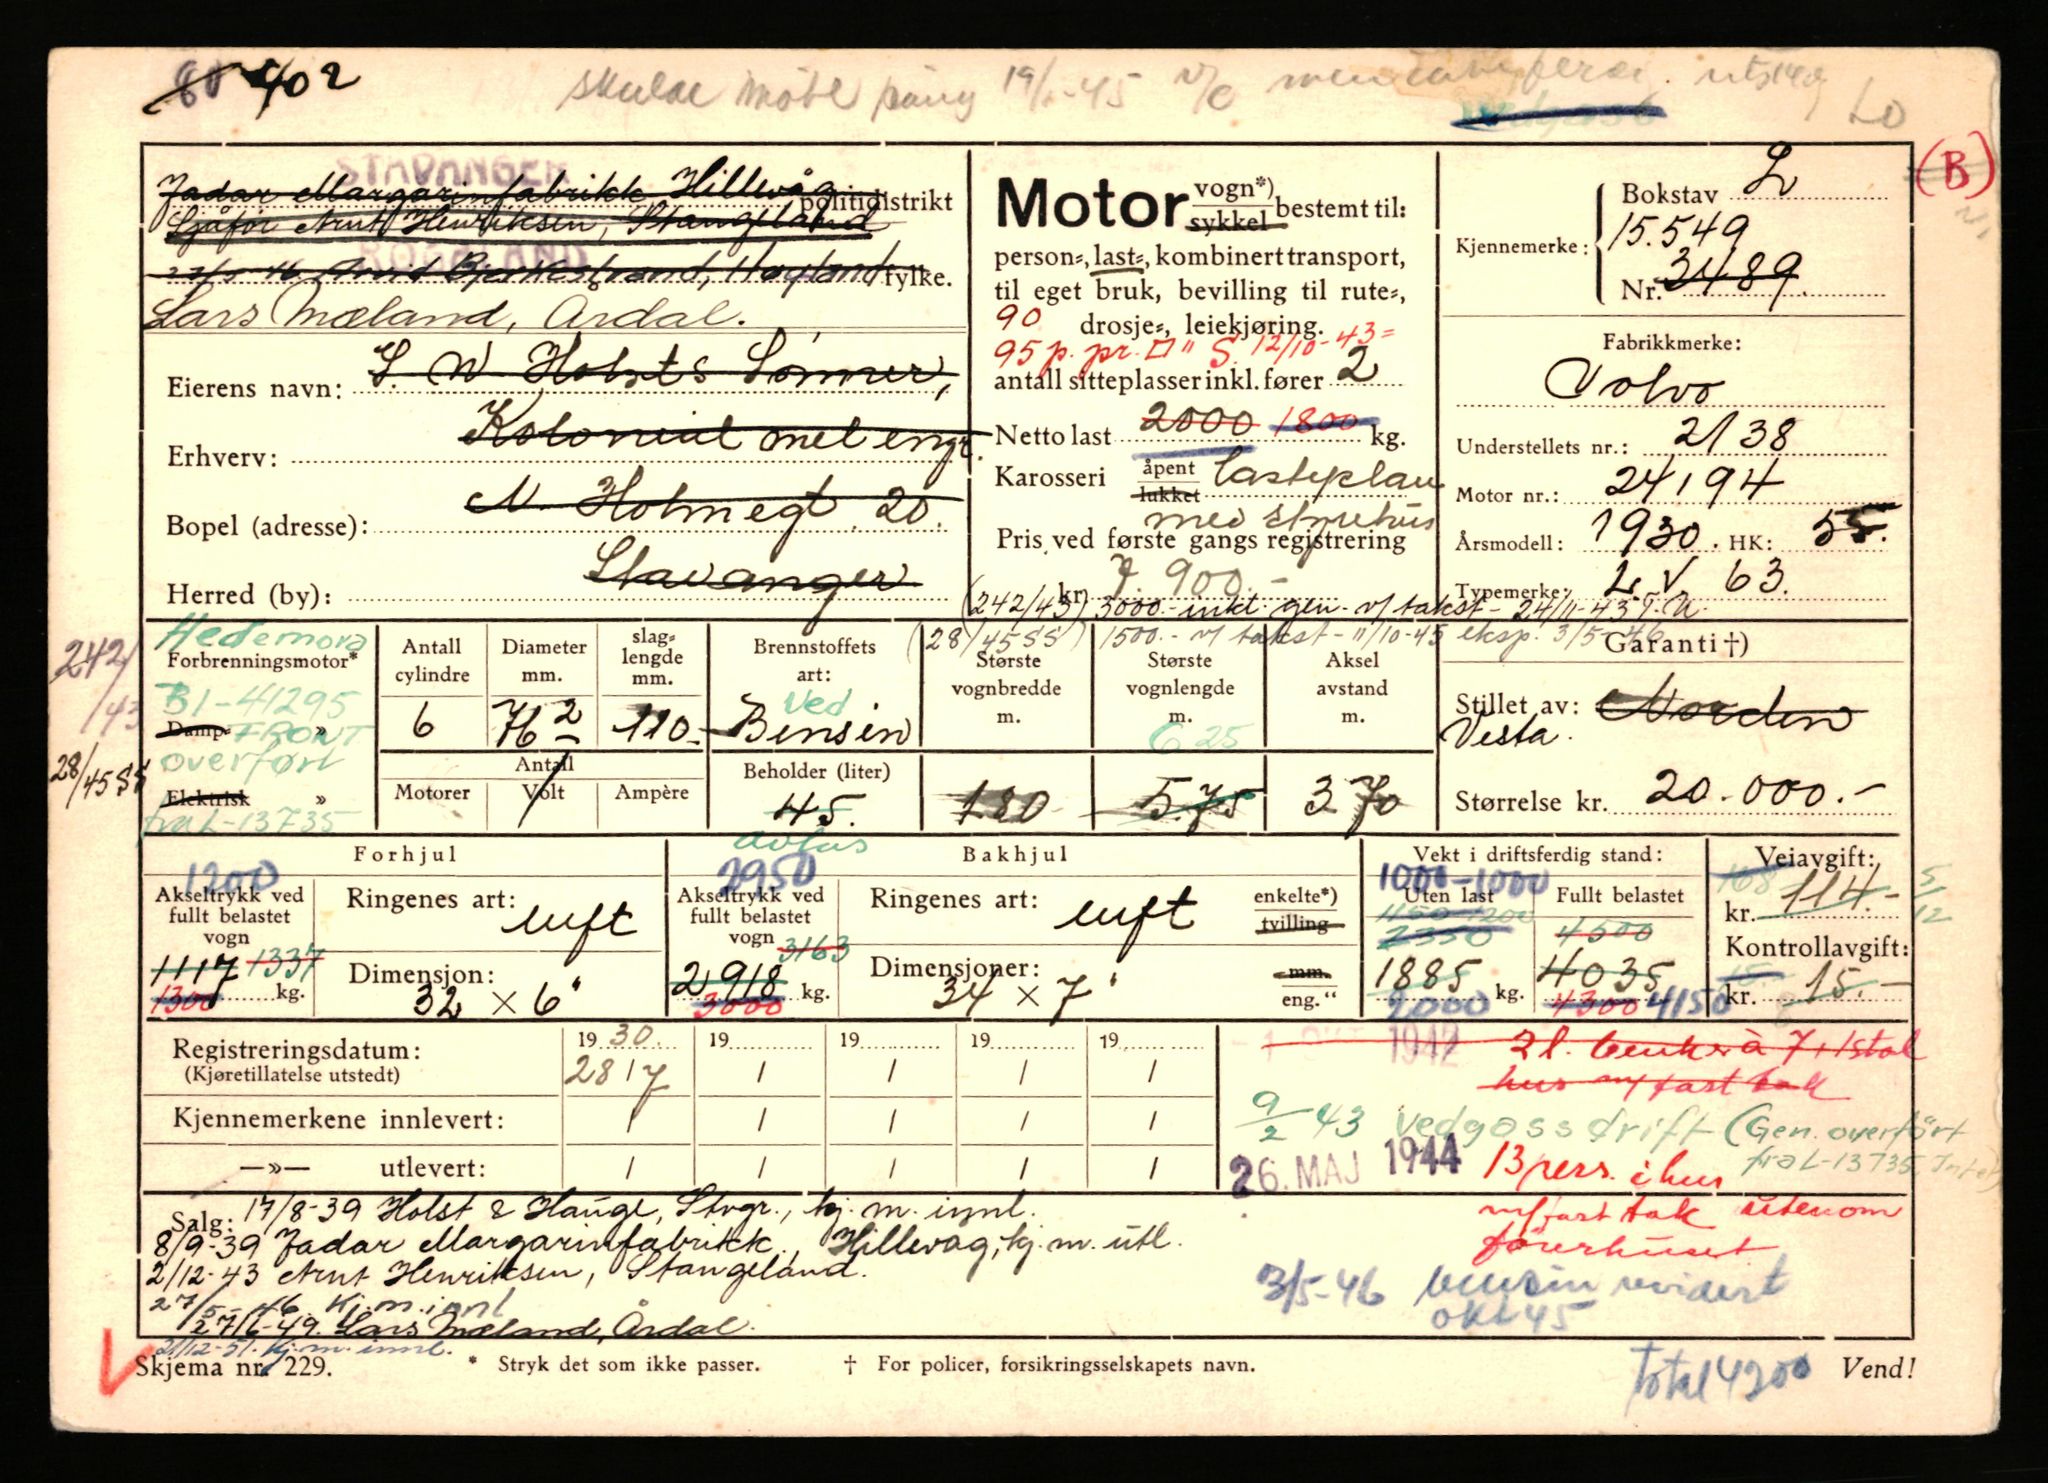 80 402
skulde møte 19/1-45
LO
(B)
STAVANGER politidistrikt
Jadar Margarinfabrikk Hillevåg
Sjåfør Arnt Henriksen, Stangeland
ROGALAND fylke.
27/5-46 Arvid Bjerkestrand, Høyland
Lars Mæland, Årdal.
Eierens navn: L. W. Holsts Sønner,
Erhverv: Kolonial mel engr.
Bopel (adresse): N. Holmegt. 20.
Herred (by): Stavanger
Motor vogn*) sykkel bestemt til:
person-, last-, kombinert transport,
til eget bruk, bevilling til rute-,
90 drosje-, leiekjøring.
95 p. pr. □" S. 12/10-43=
antall sitteplasser inkl. fører 2
Netto last 2000 1800 kg.
Karosseri åpent lukket lasteplan
med styrehus
Pris ved første gangs registrering
kr. 7.900.-
(242/43) 3000.- inkl gen. v/ takst- 24/11-43. T.U.
(28/45 SS) 1500.- v/ takst- 11/10-45 eksp. 3/5-46
Kjennemerke: Bokstav L
15.549
Nr. 3489.
Fabrikkmerke:
Volvo
Understellets nr.: 2138
Motor nr.: 24194
Årsmodell: 1930. HK: 55.
Typemerke: L.V. 63.
242/43
28/45 SS
Hedemora
Forbrenningsmotor*
B1-41295
Damp- » FRONT
overført
Elektrisk »
fra L-13735
Antall cylindre
6
Diameter mm.
76 2
slaglengde mm.
110-
Antall
Motorer Volt Ampère
Brennstoffets art:
Ved
Bensin
Beholder (liter)
45.
Største vognbredde m.
180
Største vognlengde m.
6 25
5.75
Aksel avstand m.
3 70
Garanti †)
Stillet av: Norden
Vesta.
Størrelse kr. 20.000.-
Forhjul
1200
Akseltrykk ved fullt belastet vogn
1117 1337
1300 kg.
Ringenes art: luft
Dimensjon: 32 x 6"
Bakhjul
2950
Akseltrykk ved fullt belastet vogn
3163
2918 kg.
3000
Ringenes art: luft
Dimensjoner: 34 x 7"
enkelte*)
tvilling
mm.
eng. "
Vekt i driftsferdig stand:
1000-1000
Uten last Fullt belastet
2350 4500
1885 kg. 4035
2000 4300 4150
Veiavgift:
168 5/12
kr. 114.-
Kontrollavgift:
kr. 15.-
Registreringsdatum: 1930. 19 19 19 19
(Kjøretillatelse utstedt) 28/7 / / / /
Kjennemerkene innlevert: / / / / /
—»— utlevert: / / / / /
1942 2 l. benker à 7+1 stol
hus m/ fast tak
9/2 43 Vedgassdrift (Gen. overført
fra L-13735
26. MAJ 1944 13 pers. i hus
m/fast tak utenom
førerhuset
3/5-46 bensin revidert
okt 45
Salg: 17/8-39 Holst & Hauge, Stvgr., kj. m. innl.
8/9-39 Jadar Margarinfabrikk, Hillevåg, kj. m. utl.
2/12-43 Arnt Henriksen, Stangeland.
27/5-46. Kj. m. innl
27/6-49. Lars Mæland, Årdal.
21/12-51. Kj. m. innl.
Skjema nr. 229. * Stryk det som ikke passer. † For policer, forsikringsselskapets navn. Vend!
Total 4200